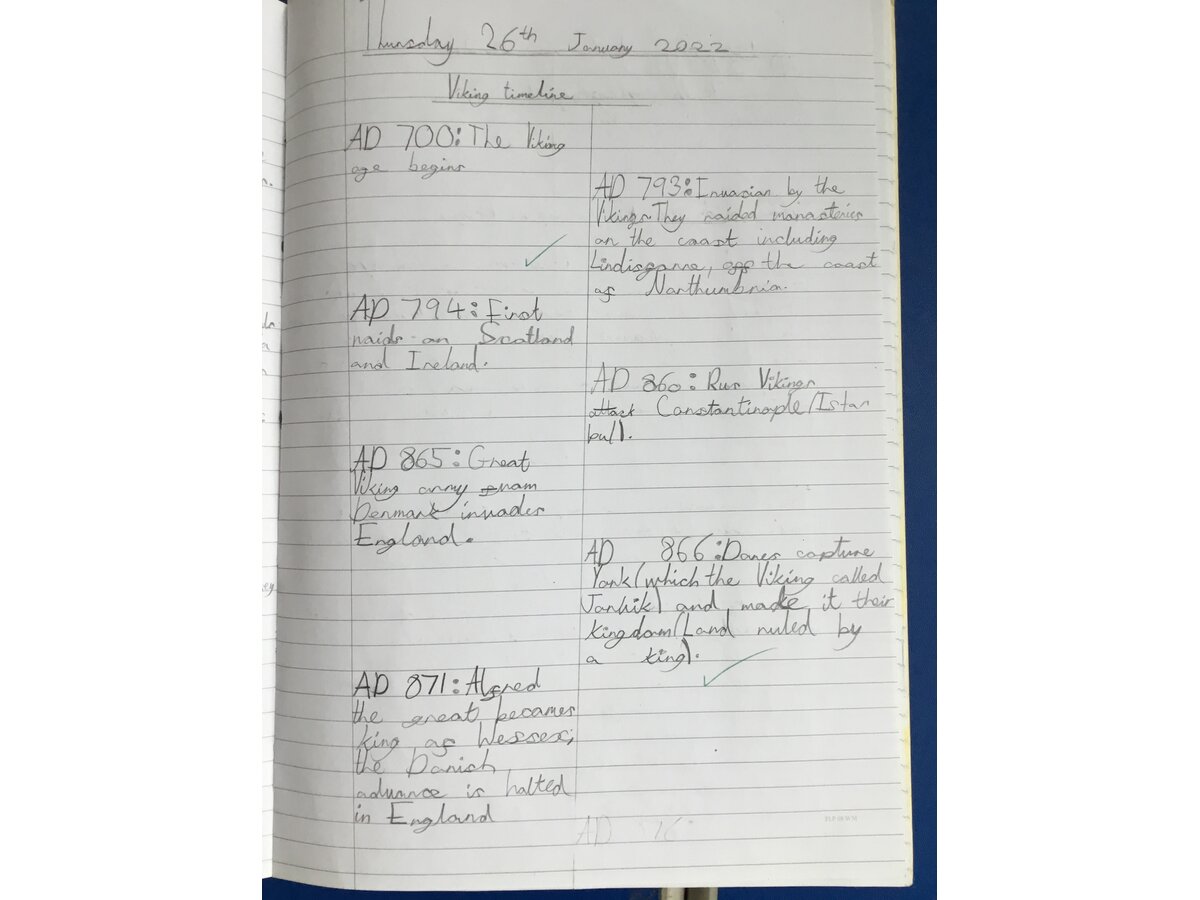 Thursday 26th January 2022
Viking timeline
AD 700: The Viking
age begins
AD 793: Invasion by the
Vikings. They raided monasteries
on the coast including
Lindisfarne, off the coast
of Northumbria.
AD 794: First
raids on Scotland
and Ireland.
AD 860: Rus Vikings
attack Constantinople/Istan
bul).
AD 865: Great
Viking army from
Denmark invades
England.
AD 866: Danes capture
York (which the Viking called
Jorvik) and made it their
kingdom (Land ruled by
a king).
AD 871: Alfred
the great becomes
king of Wessex;
the Danish
advance is halted
in England
AD